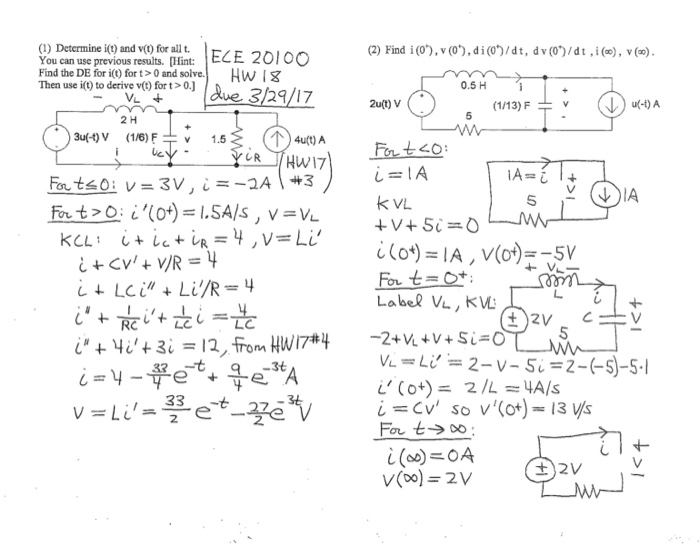 (1) Determine i(t) and v(t) for all t.
You can use previous results. [Hint:
Find the DE for i(t) for t > 0 and solve.
Then use i(t) to derive v(t) for t > 0.]
ECE 20100
HW 18
due 3/29/17
− VL +
2 H
3u(-t) V
(1/6) F
+
v
-
1.5
4u(t) A
i
ic
iR
(HW17)
#3
For t≤0: v = 3V, i = -2A
For t>0: i'(0+) = 1.5A/s, v = VL
KCL: i + ic + iR = 4, v = Li'
i + CV' + V/R = 4
i + LCi" + Li'/R = 4
i" + 1/RC i' + 1/LC i = 4/LC
i" + 4i' + 3i = 12, from HW17#4
i = 4 - 33/4 e^-t + 9/4 e^-3t A
v = Li' = 33/2 e^-t - 27/2 e^-3t V
(2) Find i(0⁺), v(0⁺), di(0⁺)/dt, dv(0⁺)/dt, i(∞), v(∞).
0.5 H
i
2u(t) V
(1/13) F
+
v
-
u(-t) A
5
For t<0:
i = 1A
KVL
+V+5i=0
1A = i
+
V
-
5
1A
i(0+) = 1A, V(0+) = -5V
For t = 0+:
Label VL, KVL:
-2+VL+V+5i=0
+ VL −
L
i
2V
C
+
V
-
5
VL = Li' = 2-V-5i = 2-(-5)-5·1
i'(0+) = 2/L = 4A/s
i = CV' so V'(0+) = 13 V/s
For t→∞:
i(∞) = 0A
V(∞) = 2V
i
+
V
-
2V